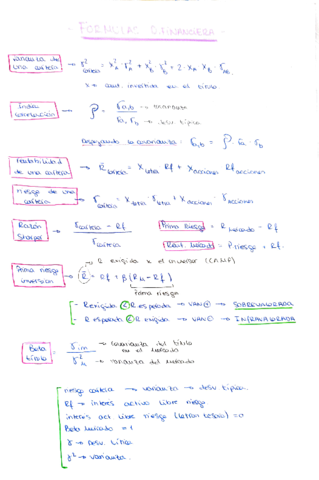 - FORMULAS D. FINANCIERA -
varianza de una cartera → σ²cartera = X²A · σ²A + X²B · σ²B + 2 · XA XB · σAB.
X → cant. invertida en el título
índice correlación → ρ = σa,b / σa, σb → covarianza → desv típica
despejando la covarianza: σa,b = ρ · σa · σb
rentabilidad de una cartera → Rcartera = Xletra Rf + Xacciones Rfacciones
riesgo de una cartera → σcartera = Xletra σletra + Xacciones σacciones
Razón Sharpe → σcartera - Rf / σcartera
Prima Riesgo = R mercado - Rf
Rent. Mercado = P riesgo + Rf.
→ R exigida x el inversor (CAPM)
Prima riesgo inversion → R = Rf + β (RM - Rf)
Prima riesgo
- R exigida < R esperada → VAN + → SOBREVALORADA
- R esperada < R exigida → VAN - → INFRAVALORADA
Beta título → σim / σ²M → covarianza del título en el mercado → varianza del mercado
riesgo cartera → varianza → desv típica.
Rf → interes activo libre riesgo
interes act libre riesgo (letras tesoro) = 0
Beta mercado = 1
σ → Desv. típica
σ² → varianza.